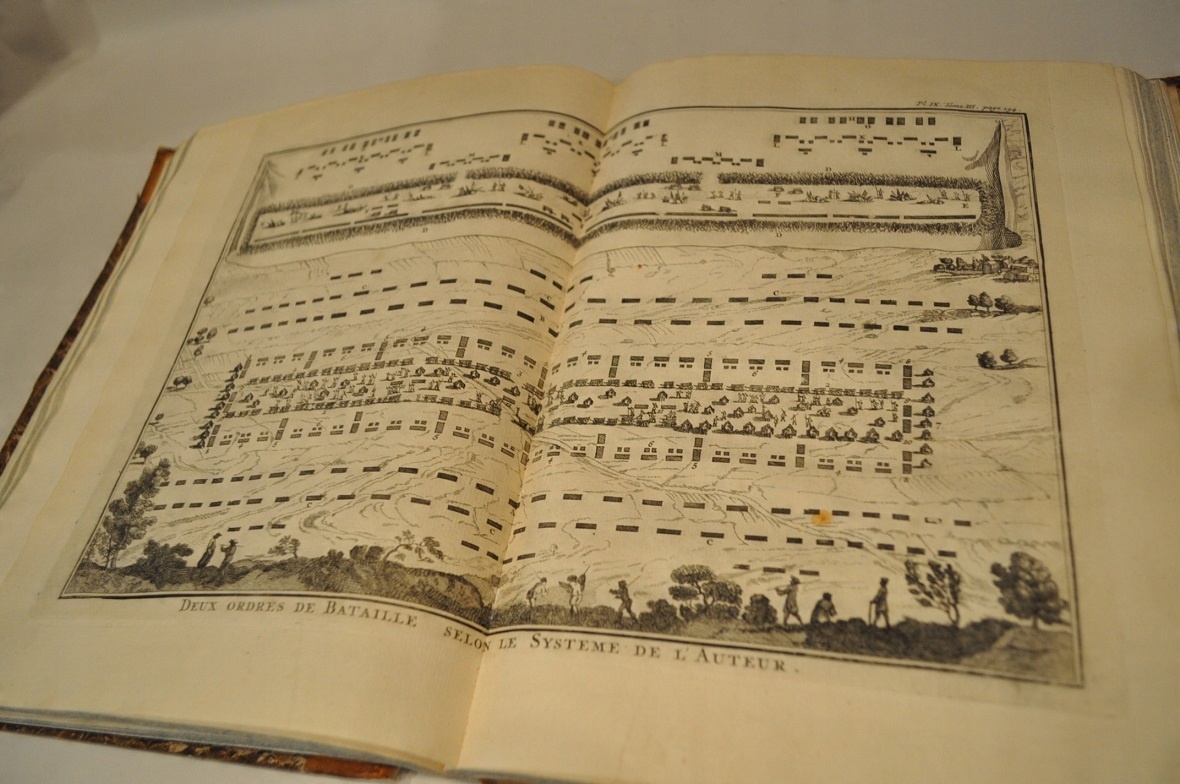 Pl. IX. Tome III. page 194
DEUX ORDRES DE BATAILLE SELON LE SYSTEME DE L'AUTEUR.